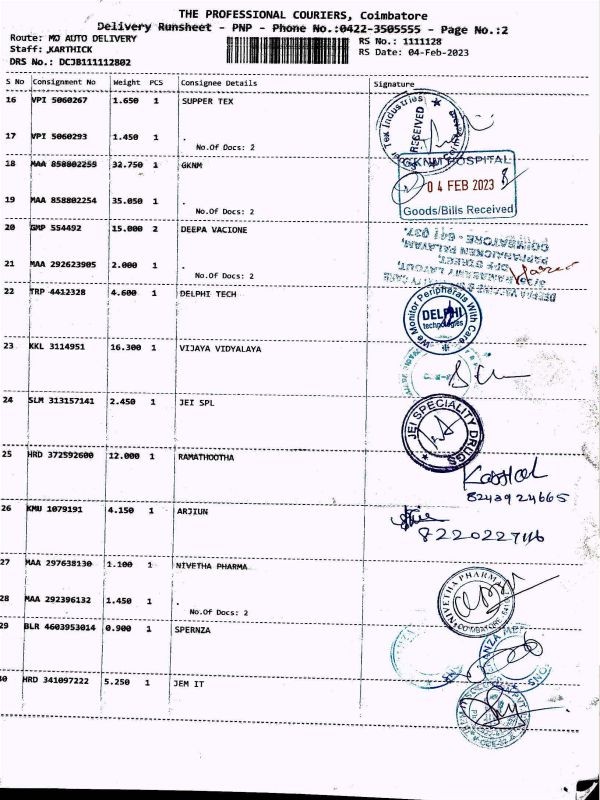 THE PROFESSIONAL COURIERS, Coimbatore
Delivery Runsheet - PNP - Phone No.:0422-3505555 - Page No.:2
Route: MO AUTO DELIVERY
RS No.: 1111128
Staff: KARTHICK
RS Date: 04-Feb-2023
DRS No.: DCJB111112802
S No Consignment No Weight PCS Consignee Details Signature
16 VPI 5060267 1.650 1 SUPPER TEX
Tex Industries
RECEIVED
17 VPI 5060293 1.450 1 .
No.Of Docs: 2
18 MAA 858802255 32.750 1 GKNM
GKNM HOSPITAL
04 FEB 2023
Goods/Bills Received
19 MAA 858802254 35.050 1 .
No.Of Docs: 2
20 GMP 554492 15.000 2 DEEPA VACIONE
COIMBATORE - 641 037.
PAPPANAICKEN PALAYAM,
OFF STREET,
21 MAA 292623905 2.000 1 .
No.Of Docs: 2
22 TRP 4412328 4.600 1 DELPHI TECH
We Monitor Peripherals With Care
DELPHI
technologies
23 KKL 3114951 16.300 1 VIJAYA VIDYALAYA
24 SLM 313157141 2.450 1 JEI SPL
JEI SPECIALITY DRUGS
25 HRD 372592600 12.000 1 RAMATHOOTHA
8243924665
26 KMU 1079191 4.150 1 ARJIUN
27 MAA 297638130 1.100 1 NIVETHA PHARMA
NIVETHA PHARMA
COIMBATORE
28 MAA 292396132 1.450 1 .
No.Of Docs: 2
29 BLR 4603953014 0.900 1 SPERNZA
30 HRD 341097222 5.250 1 JEM IT